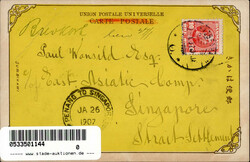 UNION POSTALE UNIVERSELLE
CARTE POSTALE
Paul Ronsild Esq.
c/o East Asiatic Comp.
Singapore
Strait Settlemen
PENANG TO SINGAPORE
JA 26
1907
きかは便郵
0533501144
www.stade-auktionen.de